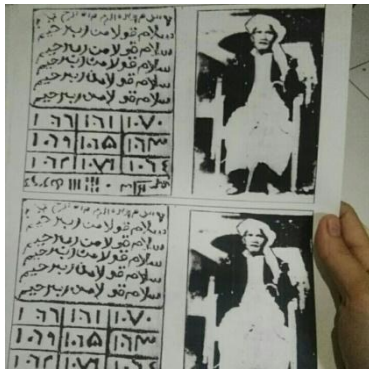 سلام قولا من رب رحيم
سلام قولا من رب رحيم
سلام قولا من رب رحيم
سلام قولا من رب رحيم
سلام قولا من رب رحيم
١٠٧٠ ١٠٦١ ١٠٦٦
١٠٦٣ ١٠٦٥ ١٠٦٩
١٠٦٤ ١٠٧١ ١٠٦٢
سلام قولا من رب رحيم
سلام قولا من رب رحيم
سلام قولا من رب رحيم
سلام قولا من رب رحيم
سلام قولا من رب رحيم
١٠٧٠ ١٠٦١ ١٠٦٦
١٠٦٣ ١٠٦٥ ١٠٦٩
١٠٦٤ ١٠٧١ ١٠٦٢